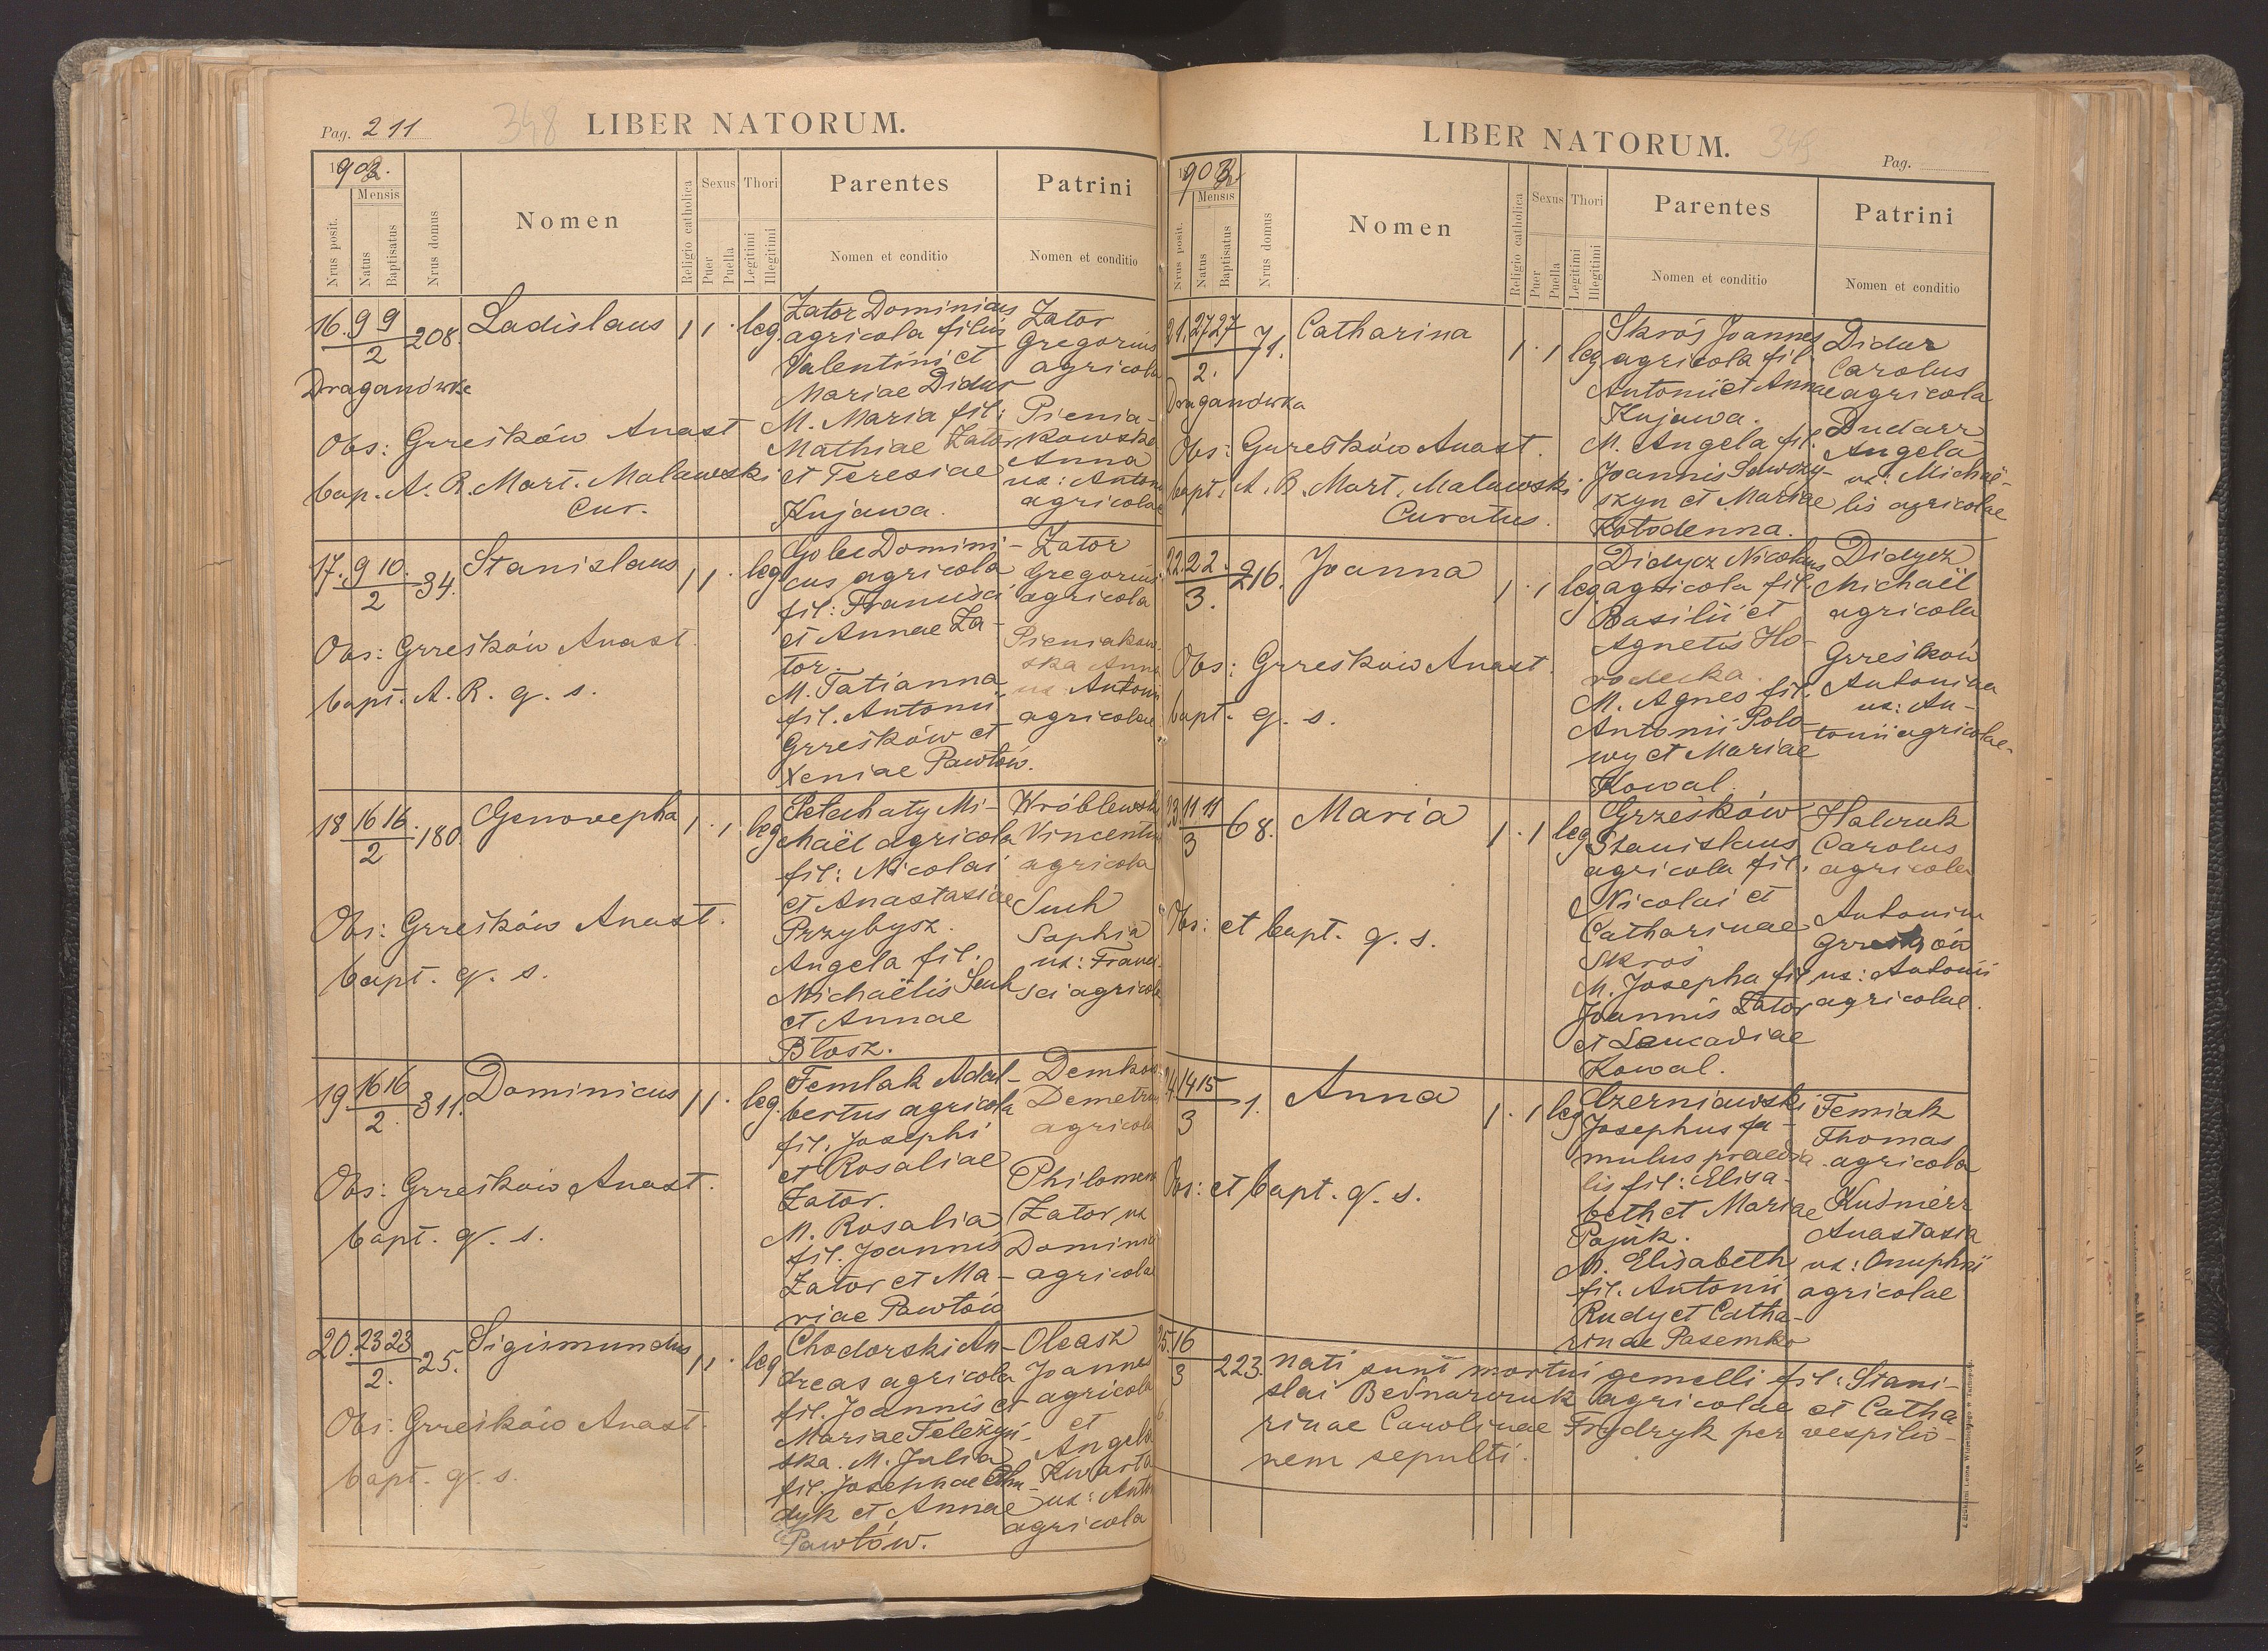 Pag. 211
348
LIBER NATORUM.
1902.
Nrus posit.
Mensis
Natus
Baptisatus
Nrus domus
Nomen
Religio catholica
Sexus
Puer
Puella
Thori
Legitimi
Illegitimi
Parentes
Nomen et conditio
Patrini
Nomen et conditio
16. 9 9 208. Ladislaus 1 1 . leg. Zator Dominicus
2
Draganówka
agricola filius
Valentini et
Mariae Didur
M. Maria fil:
Mathiae Zator
et Teresiae
Kujawa.
Zator
Gregorius
agricola
Pienia-
kowska
Anna
ux: Antonii
agricolae
Obs: Grześków Anast
bap. A. R. Mart. Malawski
Cur.
17. 9 10. 34. Stanislaus 1 1 . leg
2
Golec Domini-
cus agricola
fil: Francisci
et Annae Za-
tor.
M. Tatianna
fil. Antonii
Grześków et
Xeniae Pawłów.
Zator
Gregorius
agricola
Pieniakow-
ska Anna
ux Antonii
agricolae
Obs: Grześków Anast
bapt. A. R. q. s.
18 16 16 180. Genovepha 1 . 1 leg
2
Petechaty Mi-
chaël agricola
fil: Nicolai
et Anastasiae
Przybysz.
Angela fil.
Michaëlis Such
et Annae
Błosz.
Wróblewski
Vincentius
agricola
Such
Sophia
ux: Franci-
sci agricolae
Obs: Grześków Anast.
bapt. q. s.
19 16 16 311. Dominicus 1 1 . leg.
2
Femlak Adal-
bertus agricola
fil. Josephi
et Rosaliae
Zator.
M. Rosalia
fil. Joannis
Zator et Ma-
riae Pawłów
Demetrius
agricola
Philomena
Zator ux
Dominici
agricolae
Obs: Grześków Anast.
bapt. q. s.
20. 23 23 25. Sigismundus 1 1 . leg
2.
Chodorski An-
dreas agricola
fil. Joannis et
Mariae Teleżyń-
ska. M. Julia
fil. Josephae
dyk et Annae
Pawłów.
Oleasz
Joannes
agricola
et
Angela
Kwarta
ux: Antonii
agricola
Obs: Grześków Anast.
bapt. q. s.
LIBER NATORUM.
349
Pag.
190
Nrus posit.
Mensis
Natus
Baptisatus
Nrus domus
Nomen
Religio catholica
Sexus
Puer
Puella
Thori
Legitimi
Illegitimi
Parentes
Nomen et conditio
Patrini
Nomen et conditio
21. 27 27 71. Catharina 1 . 1 leg
2.
Draganówka
Skroś Joannes
agricola fil.
Antonii et Annae
Kujawa.
M. Angela fil.
Joannis Sawczy-
szyn et Mariae
Kołodenna.
Didur
Carolus
agricola
Dudarz
Angela
ux. Michaë-
lis agricolae
Obs: Grześków Anast.
bapt. A. R. Mart. Malawski
Curatus.
22. 22. 216. Joanna 1 . 1 leg.
3.
Didycz Nicolaus
agricola fil.
Basilii et
Agnetis Ho-
rodecka.
M. Agnes fil.
Antonii Polo-
wy et Mariae
Kowal.
Didycz
Michaël
agricola
Grześków
Antonina
ux: An-
tonii agricolae
Obs: Grześków Anast.
bapt. q. s.
23. 11 11 68. Maria 1 . 1 leg
3
Grześków
Stanislaus
agricola fil.
Nicolai et
Catharinae
Skroś
M. Josepha fil
Joannis Zator
et Leucadiae
Kowal.
Halczuk
Carolus
agricola
Antonina
Grześków
ux: Antonii
agricolae.
Obs: et bapt. q. s.
24. 14 15 1. Anna 1 . 1 leg
3
Czerniawski
Josephus fa-
mulus praedia-
lis fil: Elisa-
beth et Mariae
Pojuk.
M. Elisabeth
fil. Antonii
Rudy et Catha-
rinae Pasemko
Femiak
Thomas
agricola
Kuśnierz
Anastasia
ux: Onuphrii
agricolae
Obs: et bapt. q. s.
25. 16 223. Nati sunt mortui gemelli fil: Stani-
3
slai Bednarczuk agricolae et Catha
rinae Carolinae Frydryk per vespilio-
nem sepulti.